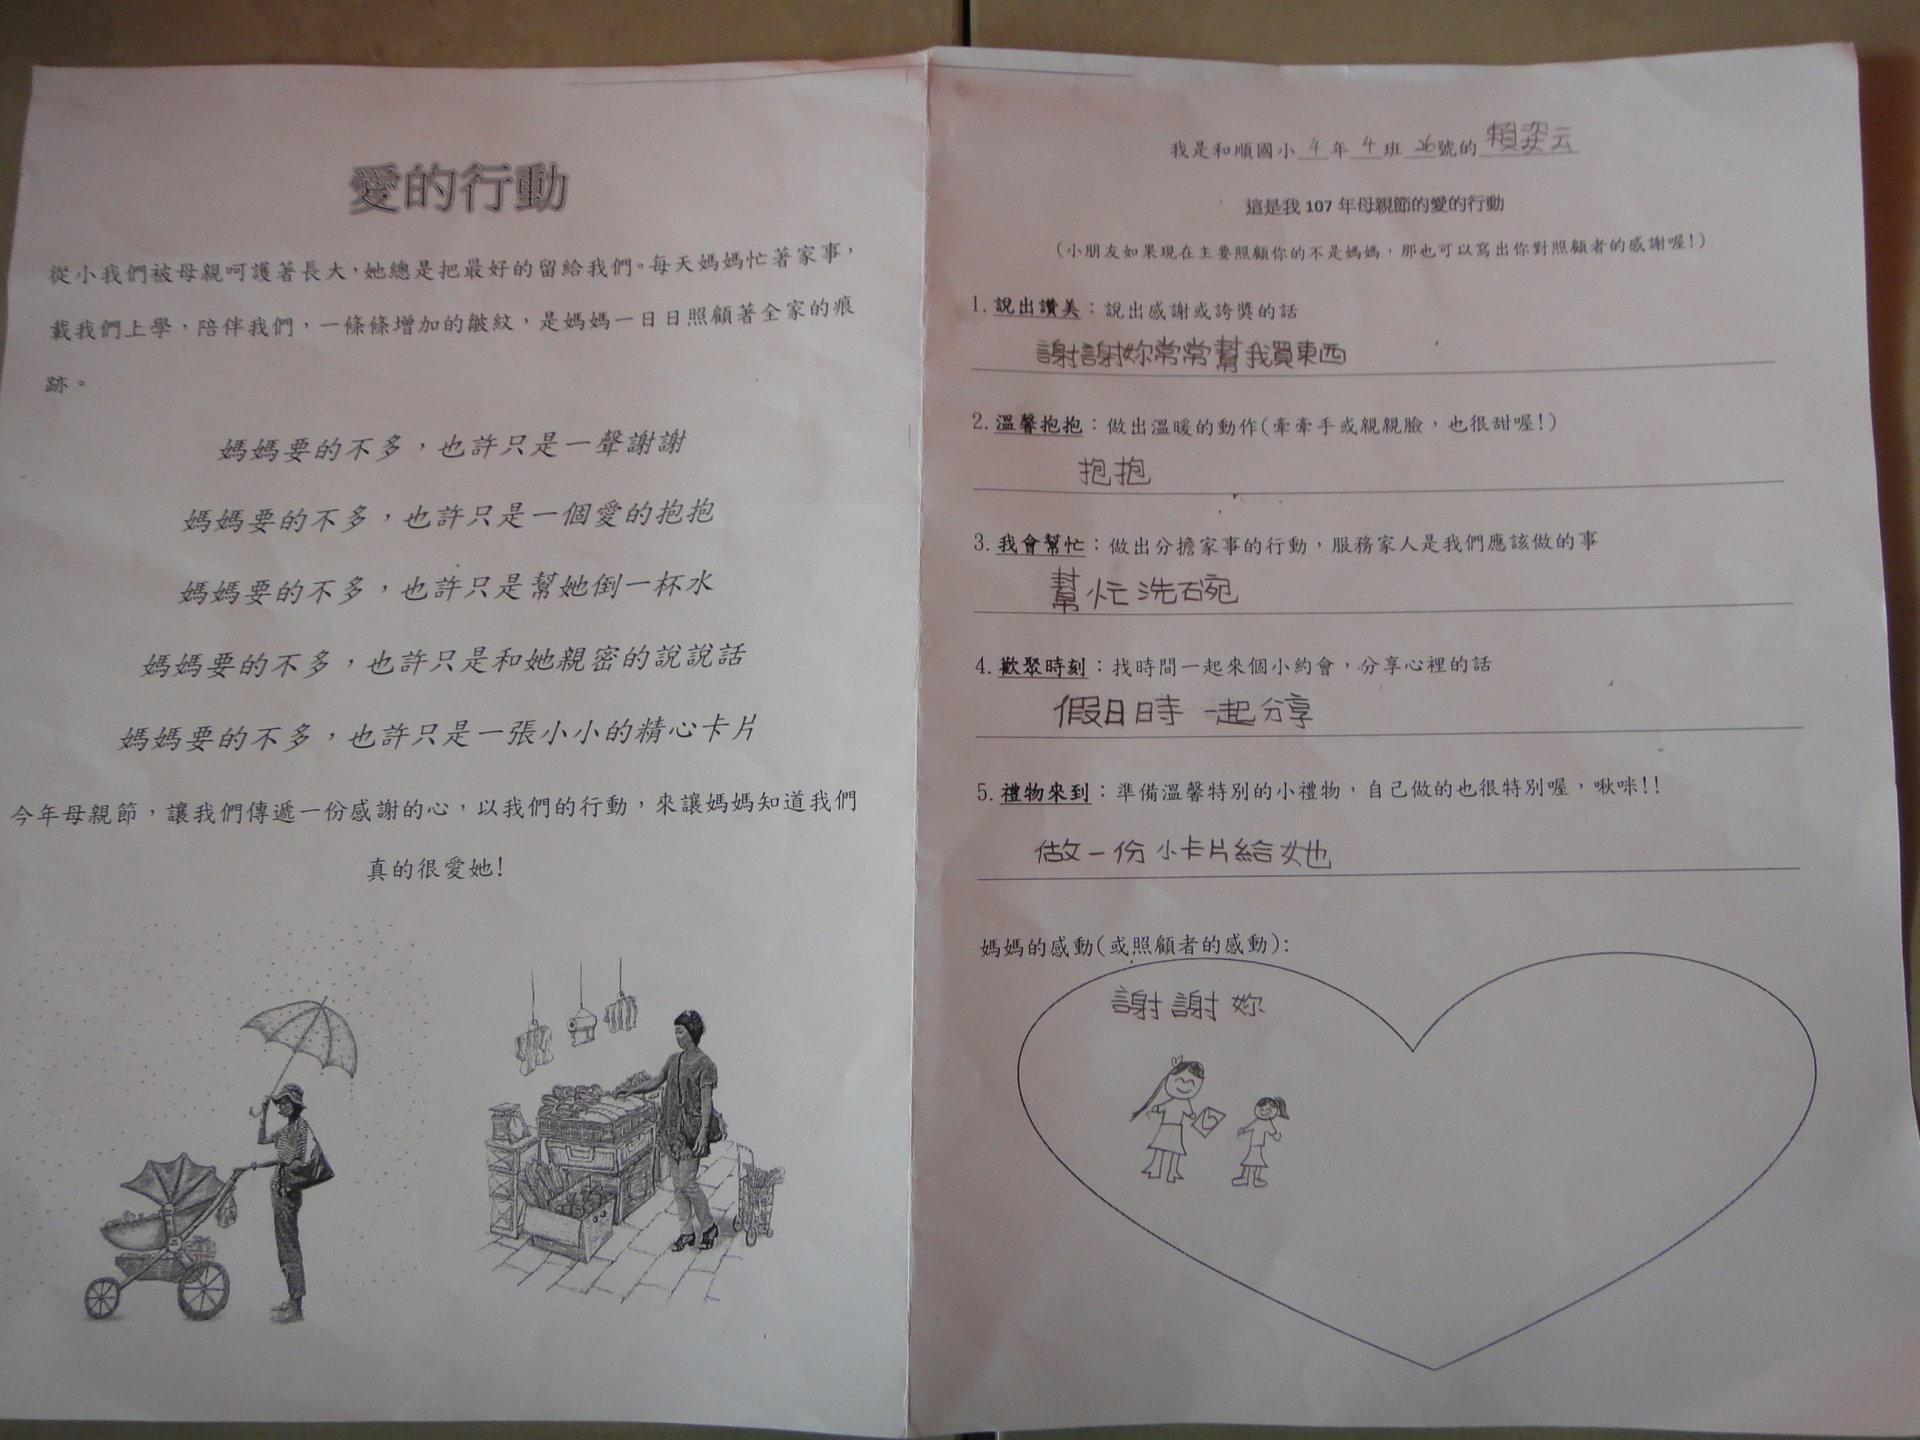 愛的行動
從小我們被母親呵護著長大，她總是把最好的留給我們。每天媽媽忙著家事，
載我們上學，陪伴我們，一條條增加的皺紋，是媽媽一日日照顧著全家的痕
跡。
媽媽要的不多，也許只是一聲謝謝
媽媽要的不多，也許只是一個愛的抱抱
媽媽要的不多，也許只是幫她倒一杯水
媽媽要的不多，也許只是和她親密的說說話
媽媽要的不多，也許只是一張小小的精心卡片
今年母親節，讓我們傳遞一份感謝的心，以我們的行動，來讓媽媽知道我們
真的很愛她!
我是和順國小 4 年 4 班 26 號的 賴姿云
這是我 107 年母親節的愛的行動
(小朋友如果現在主要照顧你的不是媽媽，那也可以寫出你對照顧者的感謝喔!)
1.說出讚美：說出感謝或誇獎的話
謝謝妳常常幫我買東西
2.溫馨抱抱：做出溫暖的動作(牽牽手或親親臉，也很甜喔!)
抱抱
3.我會幫忙：做出分擔家事的行動，服務家人是我們應該做的事
幫忙洗碗
4.歡聚時刻：找時間一起來個小約會，分享心裡的話
假日時一起分享
5.禮物來到：準備溫馨特別的小禮物，自己做的也很特別喔，啾咪!!
做一份小卡片給她
媽媽的感動(或照顧者的感動):
謝謝妳